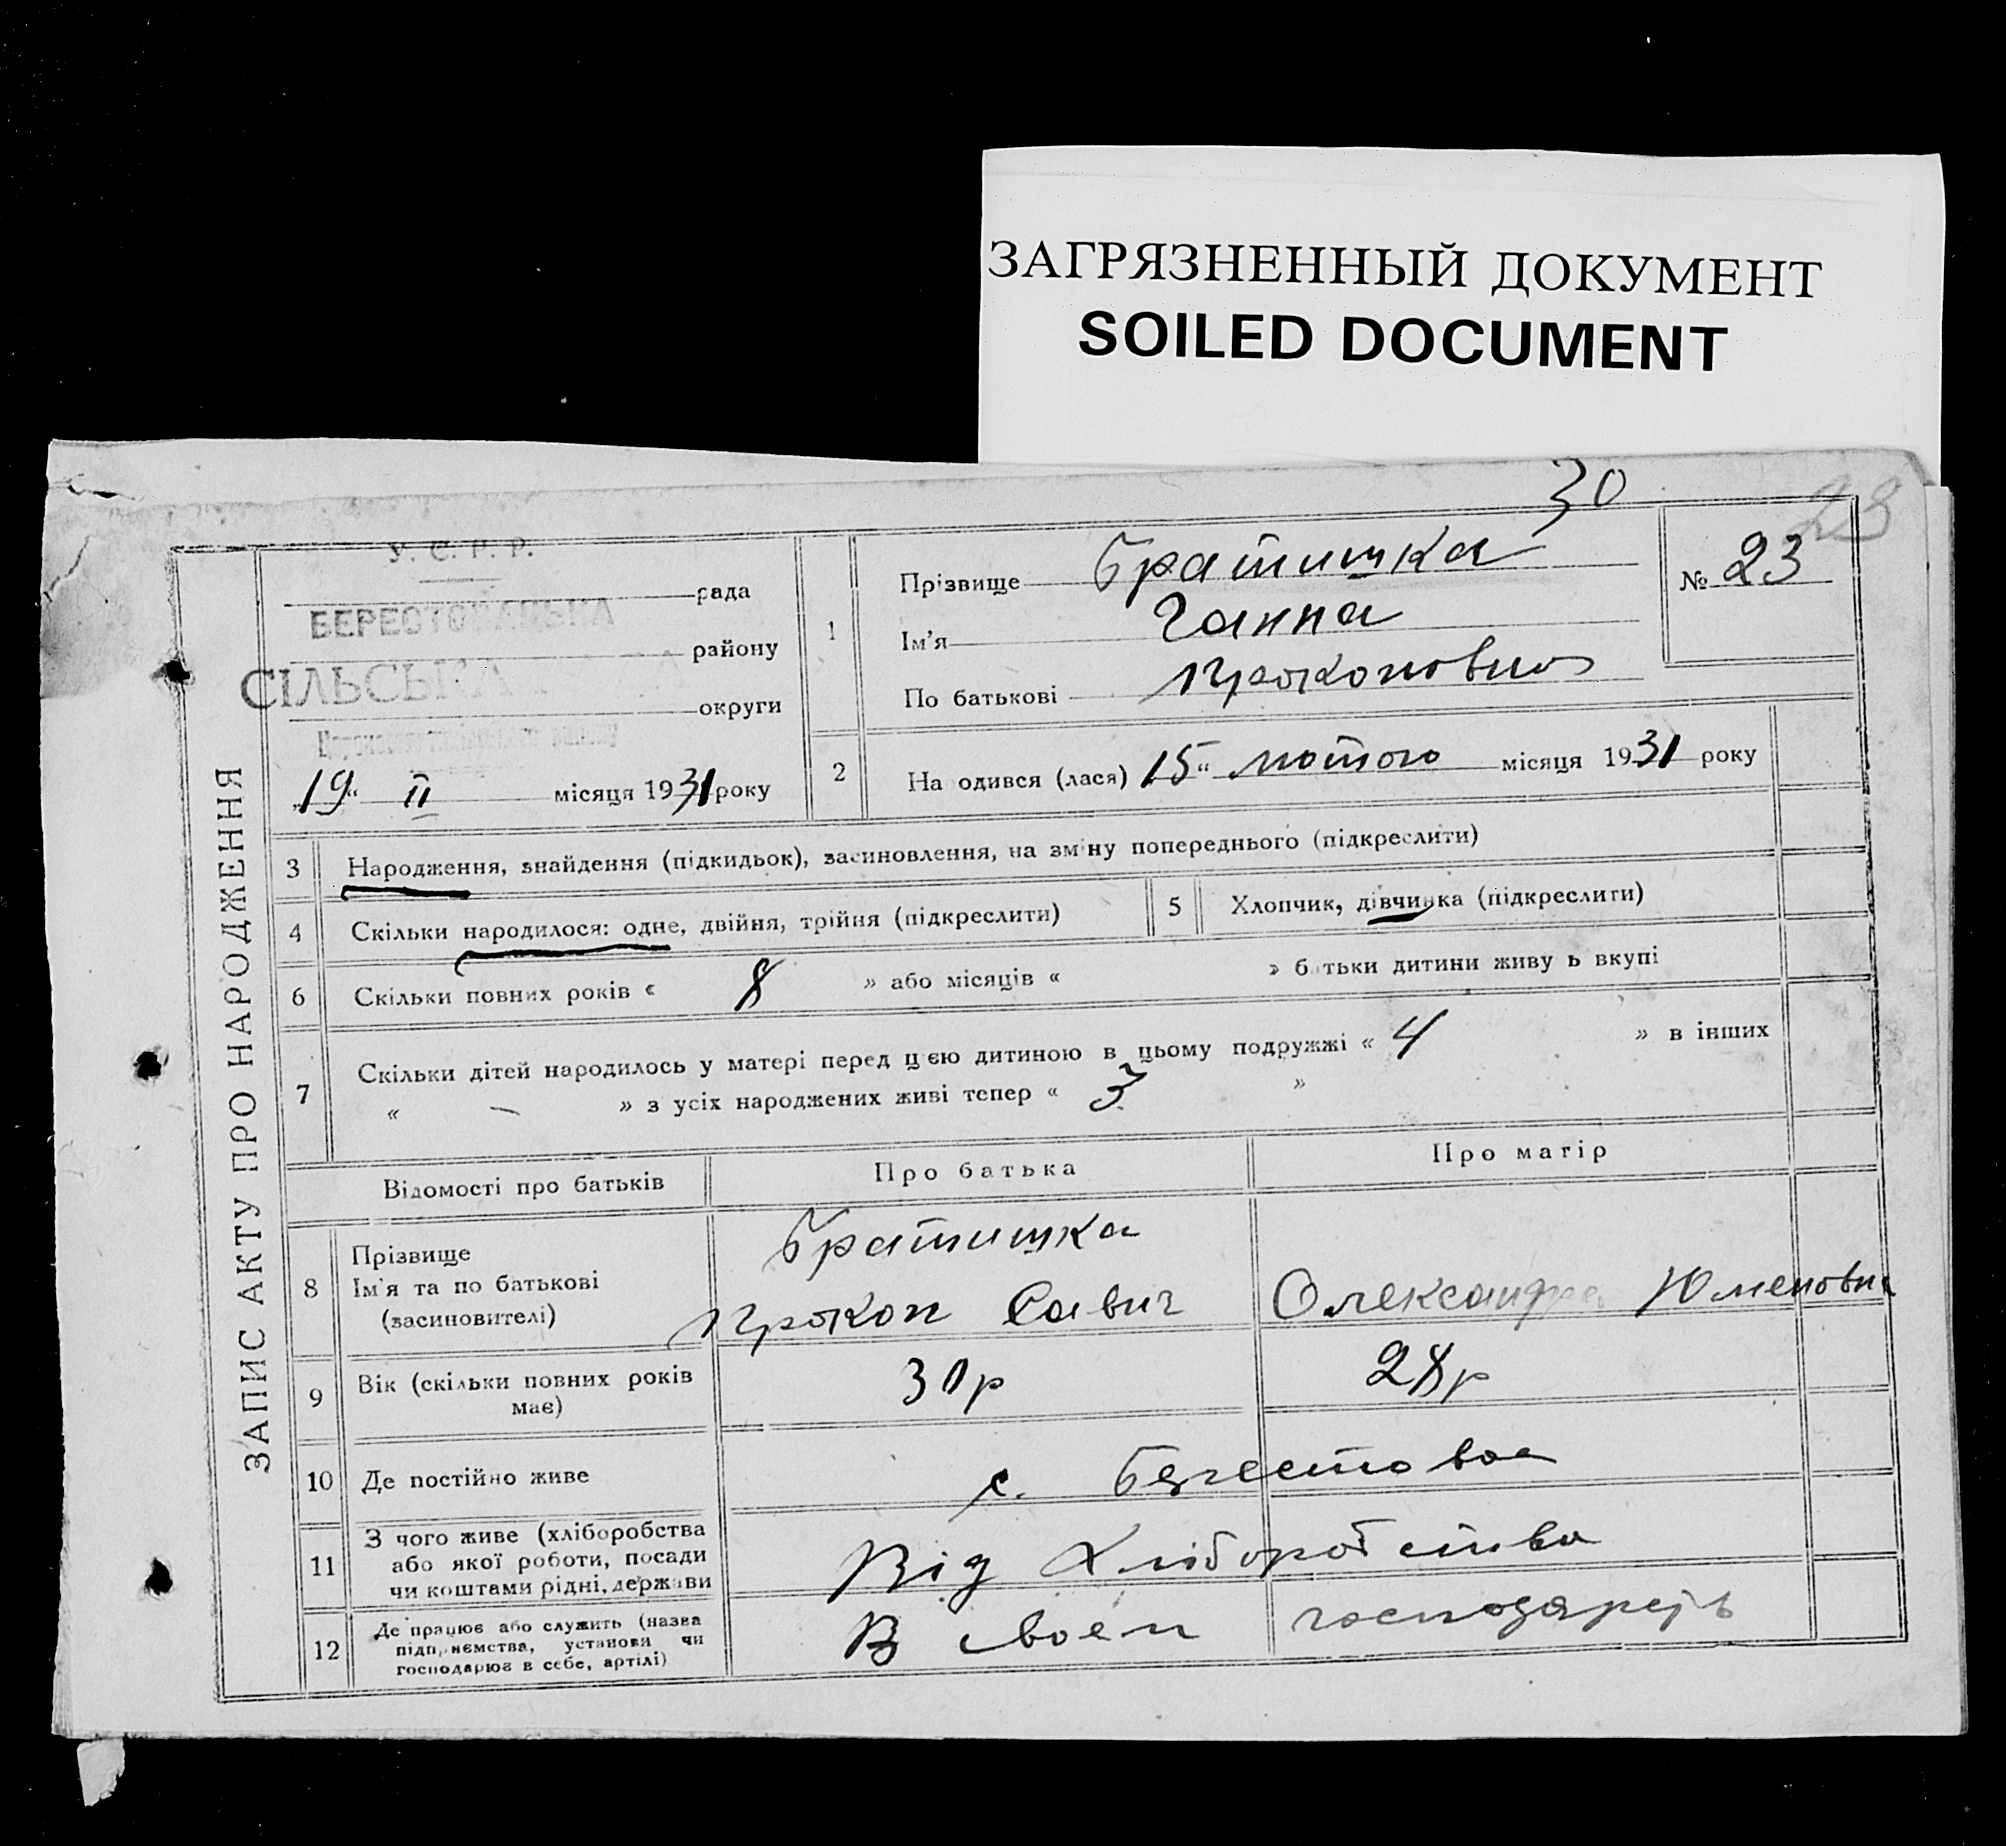 ЗАГРЯЗНЕННЫЙ ДОКУМЕНТ
SOILED DOCUMENT
30
23
ЗАПИС АКТУ ПРО НАРОДЖЕННЯ
У. С. Р. Р.
рада
району
СІЛЬСЬКА
округи
„19“ II місяця 1931 року
1
Прізвище Братишка
Ім'я Ганна
По батькові Прокоповна
№ 23
2
На одився (лася) 15“ лютого місяця 1931 року
3 Народження, знайдення (підкидьок), засиновлення, на зміну попереднього (підкреслити)
4 Скільки народилося: одне, двійня, трійня (підкреслити)
5 Хлопчик, дівчинка (підкреслити)
6 Скільки повних років « 8 » або місяців « » батьки дитини живу ь вкупі
7 Скільки дітей народилось у матері перед цією дитиною в цьому подружжі « 4 » в інших
« — » з усіх народжених живі тепер « 3 »
Відомості про батьків
Про батька
Про матір
8 Прізвище
Ім'я та по батькові
(засиновителі)
Братишка
Прокоп Савич
Олександра
9 Вік (скільки повних років
має)
30р
28р
10 Де постійно живе
с.
11 З чого живе (хліборобства
або якої роботи, посади
чи коштами рідні, держави
Від Хліборобства
12 Де працює або служить (назва
підприємства, установи чи
господарює в себе, артілі)
В своем